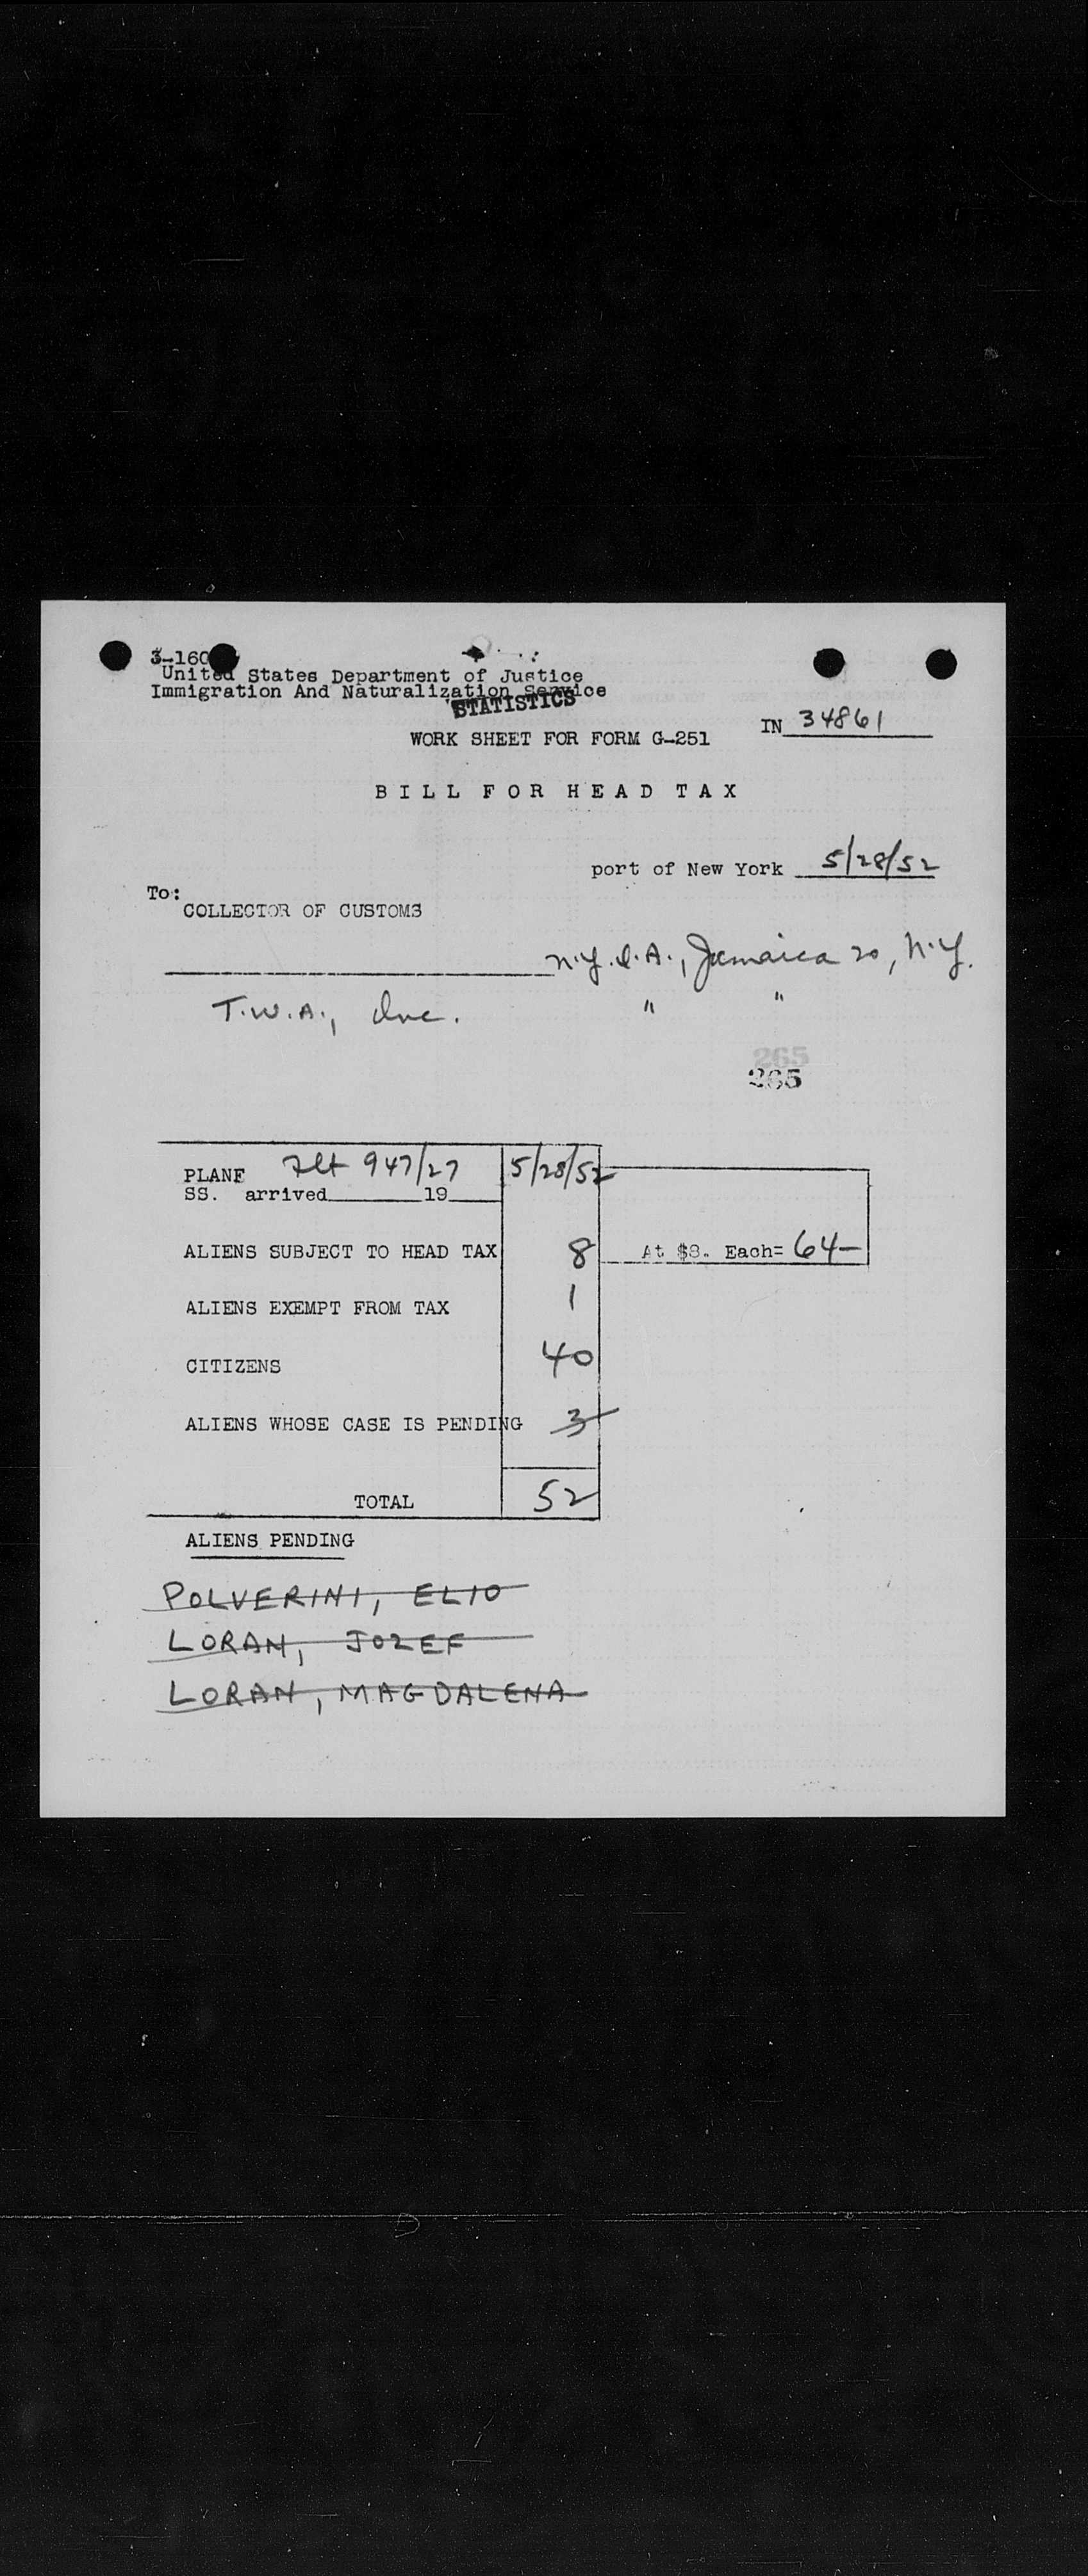 3-160
United States Department of Justice
Immigration And Naturalization Service
STATISTICS
IN 34861
WORK SHEET FOR FORM G-251
BILL FOR HEAD TAX
port of New York 5/28/52
To:
COLLECTOR OF CUSTOMS
N.Y.I.A., Jamaica 20, N.Y.
T.W.A., Inc. " "
265
265
PLANE Flt 947/27 5/28/52
SS. arrived 19
ALIENS SUBJECT TO HEAD TAX 8 At $8. Each= 64-
ALIENS EXEMPT FROM TAX 1
CITIZENS 40
ALIENS WHOSE CASE IS PENDING 3
TOTAL 52
ALIENS PENDING
POLVERINI, ELIO
LORAN, JOZEF
LORAN, MAGDALENA